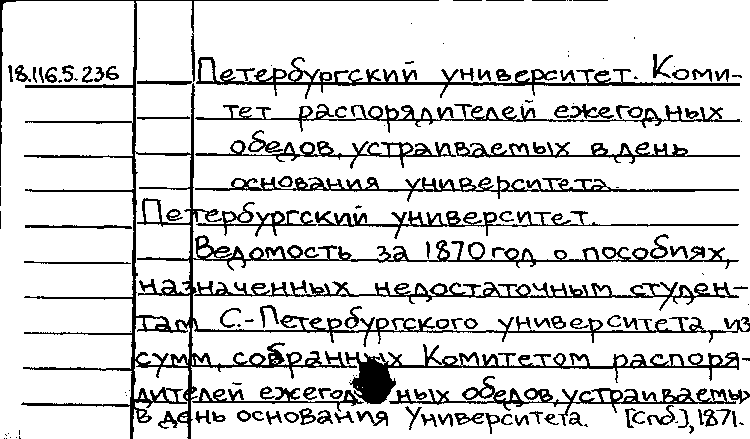 18.116.5.236 Петербургский университет. Коми-
тет распорядителей ежегодных
обедов, устраиваемых в день
основания университета
Петербургский университет.
Ведомость за 1870 год о пособиях,
назначенных недостаточным студен-
там С.-Петербургского университета, из
сумм, собранных Комитетом распоря-
дителей ежегодных обедов, устраиваемых
в день основания Университета. [Спб.], 1871.